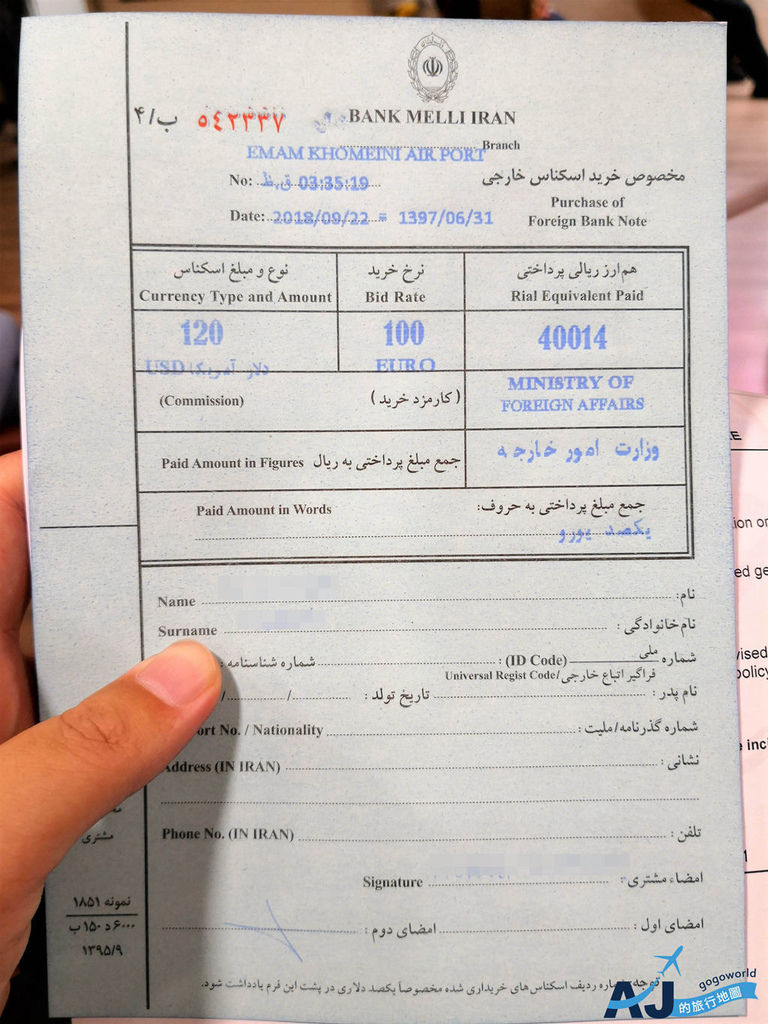 BANK MELLI IRAN
۴/ب ۵۴۲۳۳۷
Branch
EMAM KHOMEINI AIR PORT
مخصوص خرید اسکناس خارجی
No: 03:35:19 ق.ظ
Purchase of
Foreign Bank Note
Date: 2018/09/22 = 1397/06/31
نوع و مبلغ اسکناس
Currency Type and Amount
نرخ خرید
Bid Rate
هم‌ارز ریالی پرداختی
Rial Equivalent Paid
120
USD دلار آمریکا
100
EURO
40014
(Commission) (کارمزد خرید)
MINISTRY OF
FOREIGN AFFAIRS
Paid Amount in Figures جمع مبلغ پرداختی به ریال
وزارت امور خارجه
Paid Amount in Words جمع مبلغ پرداختی به حروف:
یکصد یورو
Name نام:
Surname نام‌خانوادگی:
شماره ملی (ID Code): شماره شناسنامه:
فراگیر اتباع خارجی/Universal Regist Code
نام پدر: تاریخ تولد: / /
ort No. / Nationality شماره گذرنامه/ملیت:
Address (IN IRAN) نشانی:
Phone No. (IN IRAN) تلفن:
Signature امضاء مشتری:
امضای اول: امضای دوم:
توجه: شماره ردیف اسکناس‌های خریداری شده مخصوصاً یکصد دلاری در پشت این فرم یادداشت شود.
مشتری
نمونه ۱۸۵۱
۶۰۰۰ د ۱۵۰ ب
۱۳۹۵/۹
E
ion or
ed ge
vised
policy
inc
gogoworld
AJ的旅行地圖